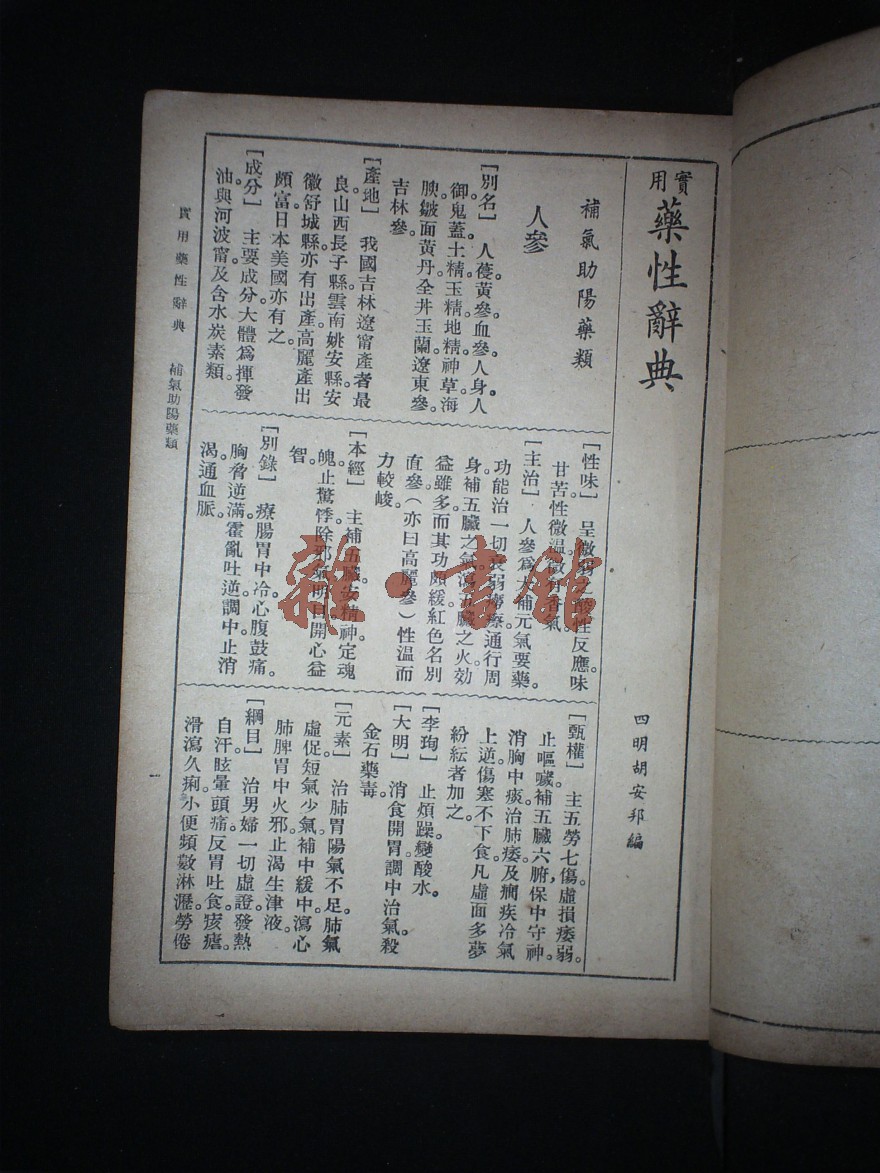 實用藥性辭典
四明胡安邦編
補氣助陽藥類
人參
[別名] 人蓡。黃參。血參。人身。人
御。鬼蓋。土精。玉精。地精。神草。海
腴。皺面。黃丹。金井玉蘭。遼東參。
吉林參。
[產地] 我國吉林遼甯產者最
良。山西長子縣雲南姚安縣安
徽舒城縣亦有出產。高麗產出
頗富。日本美國亦有之。
[成分] 主要成分。大體爲揮發
油與河波甯及含水炭素類。
[性味] 呈微弱之酸性反應。味
甘苦。性微溫。微有香氣。
[主治] 人參爲大補元氣要藥。
功能治一切衰弱。通行周
身。補五臟之氣。瀉五臟之火。効
益雖多。而其功頗緩。紅色名別
直參(亦曰高麗參)性溫而
力較峻。
[本經] 主補五臟。安精神。定魂
魄。止驚悸。除邪氣。明目開心益
智。
[別錄] 療腸胃中冷。心腹鼓痛。
胸脅逆滿。霍亂吐逆。調中止消
渴。通血脈。
[甄權] 主五勞七傷。虛損痿弱。
止嘔噦。補五臟六腑。保中守神。
消胸中痰。治肺痿及癎疾。冷氣
上逆。傷寒不下食。凡虛而多夢
紛紜者加之。
[李珣] 止煩躁。變酸水。
[大明] 消食開胃。調中治氣。殺
金石藥毒。
[元素] 治肺胃陽氣不足。肺氣
虛促。短氣少氣。補中緩中。瀉心
肺脾胃中火邪。止渴生津液。
[綱目] 治男婦一切虛證。發熱
自汗。眩暈頭痛。反胃吐食。痎瘧。
滑瀉久痢。小便頻數淋瀝。勞倦
實用藥性辭典 補氣助陽藥類
一
雜·書館